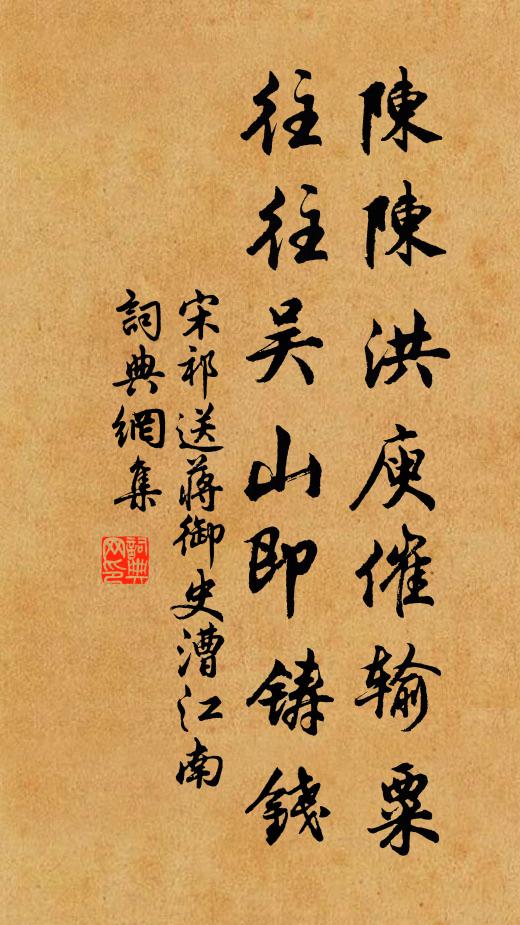 陳陳洪庾催输粟
往往吴山即鑄錢
宋祁送蔣御史漕江南
詞典網集
詞典网印